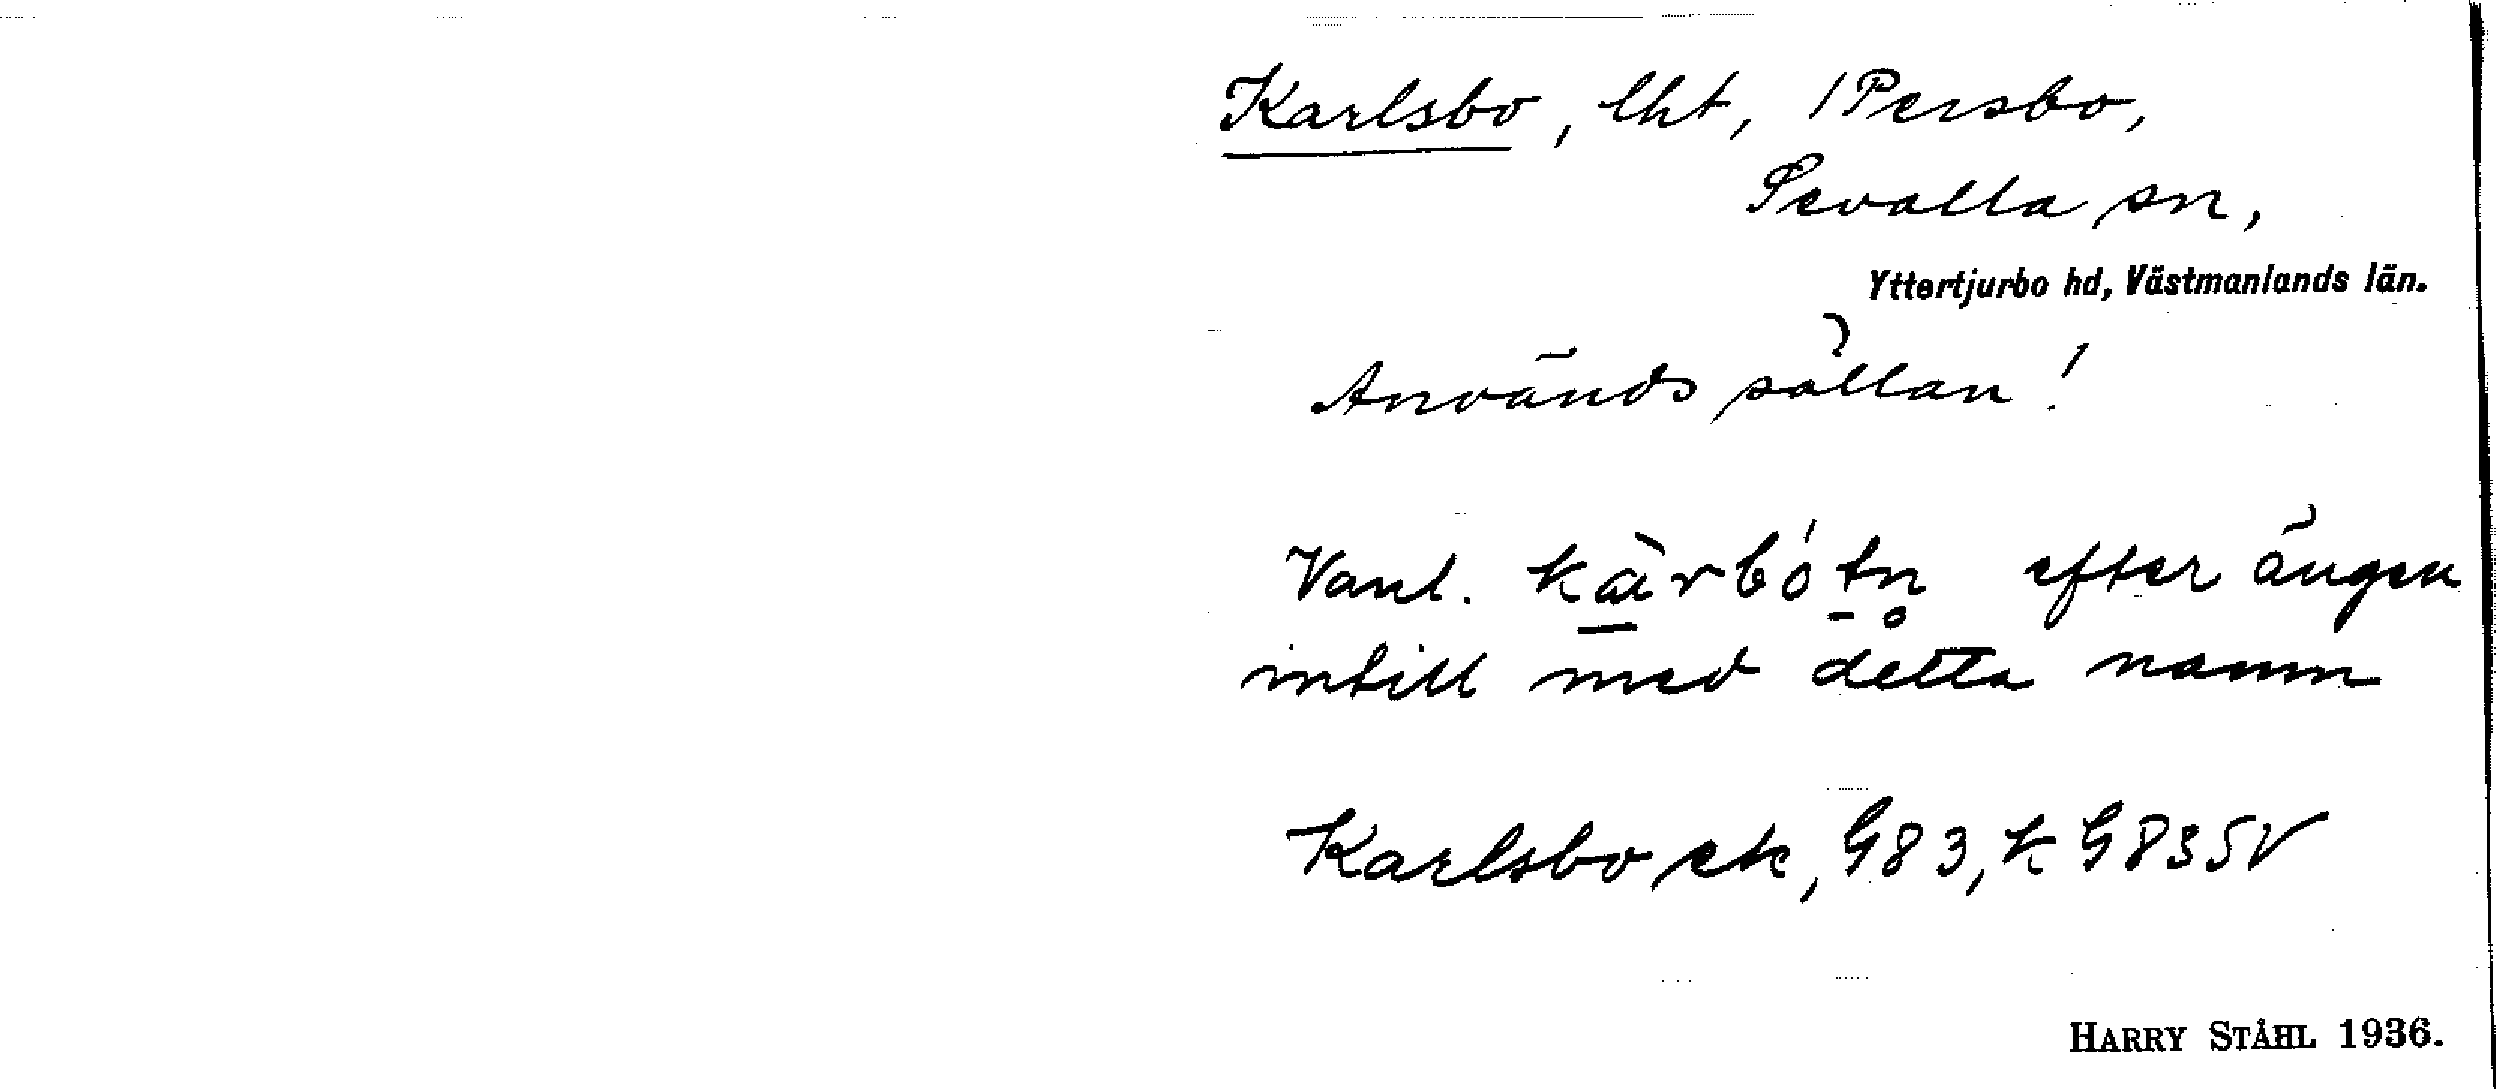 Karlsbo, lht, /Persbo,
Sevalla sn,
Yttertjurbo hd, Västmanlands län.
Används sällan!
Vanl. kä̀rbótn efter ängen
intill med detta namn
Karlsbo ek, G83, k G83SV
HARRY STÅHL 1936.